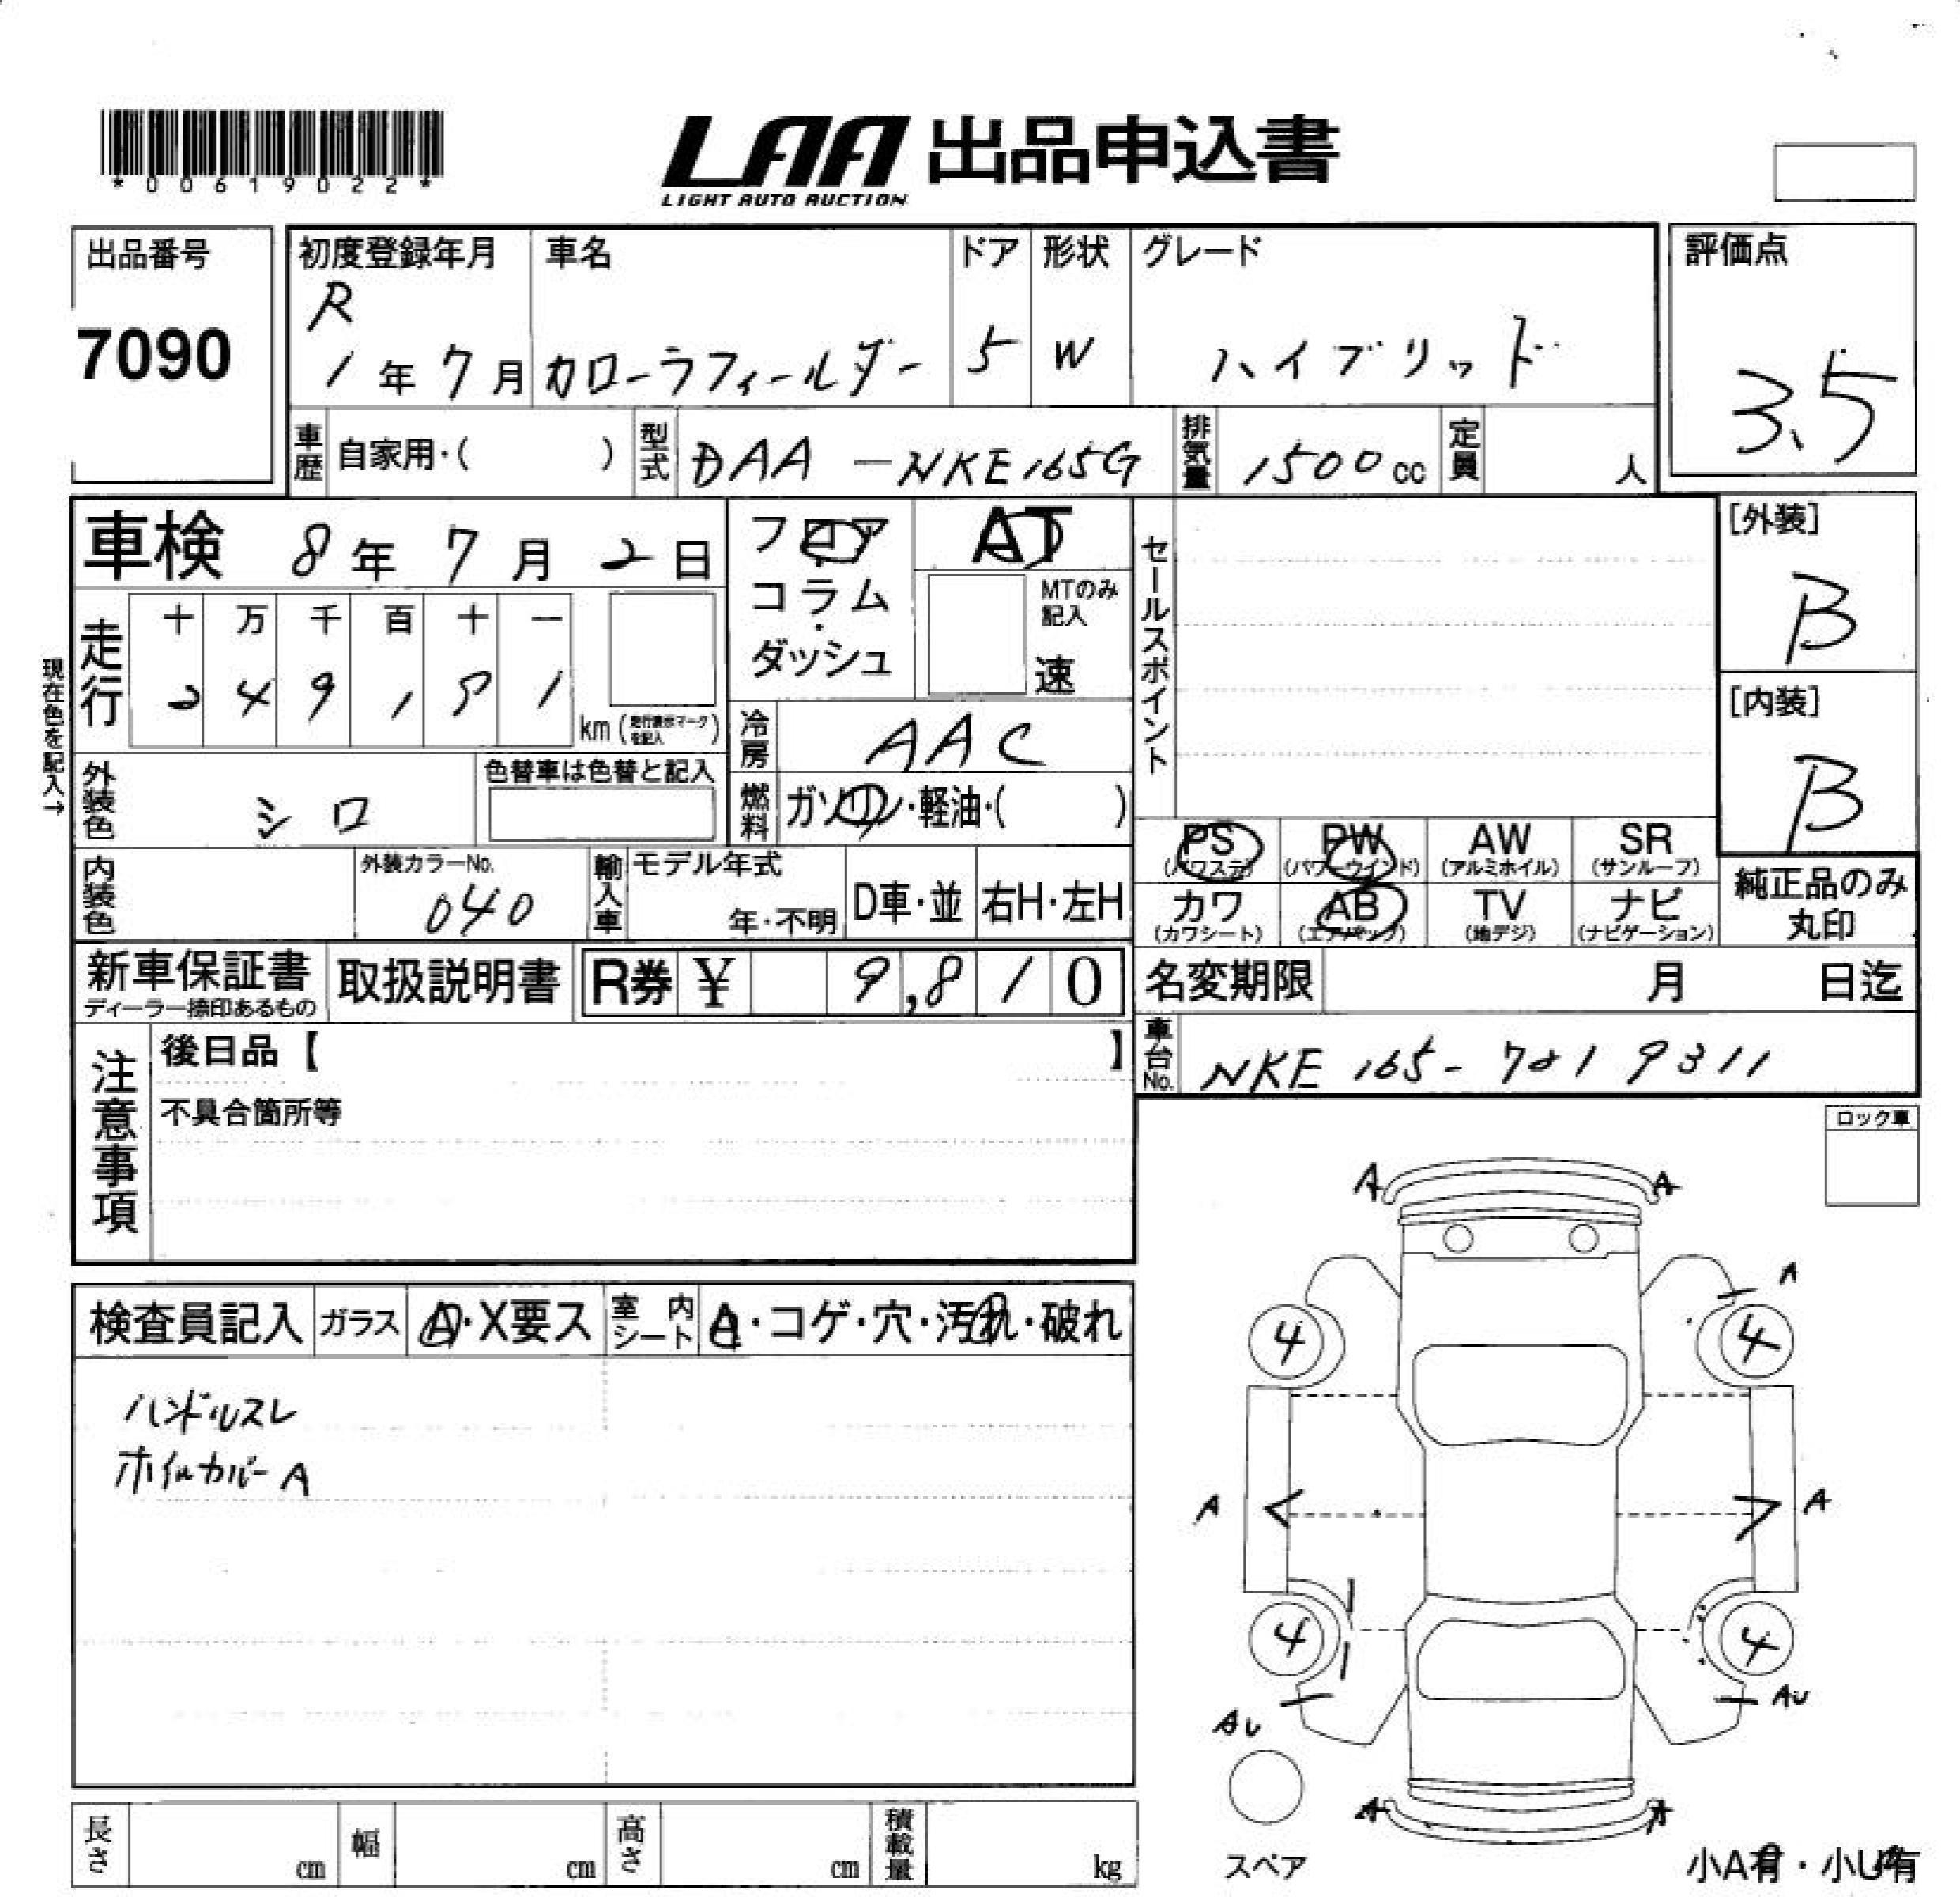 *00619022*
LAA 出品申込書
LIGHT AUTO AUCTION
出品番号
7090
初度登録年月
R
1年7月
車名
カローラフィールダー
ドア
5
形状
W
グレード
ハイブリッド
評価点
3.5
車歴 自家用・( )
型式 DAA-NKE165G
排気量 1500cc
定員 人
車検 8年7月2日
現在色を記入→
走行
十 万 千 百 十 一
2 4 9 1 5 1
km (走行表示マークを記入)
フロア
コラム
・
ダッシュ
AT
MTのみ記入
速
冷房 AAC
燃料 ガソリン・軽油・( )
外装色 シロ
色替車は色替と記入
内装色
外装カラーNo.
040
輸入車
モデル年式
年・不明
D車・並
右H・左H
セールスポイント
[外装]
B
[内装]
B
PS (パワステ)
PW (パワーウインド)
AW (アルミホイル)
SR (サンルーフ)
カワ (カワシート)
AB (エアバック)
TV (地デジ)
ナビ (ナビゲーション)
純正品のみ丸印
新車保証書
ディーラー捺印あるもの
取扱説明書
R券 ¥ 9,810
名変期限 月 日迄
車台No. NKE165-7019311... 
注意事項
後日品【 】
不具合箇所等
ロック車
検査員記入
ガラス A・X要ス
室内シート A・コゲ・穴・汚れ・破れ
ハンドルスレ
ホイルカバーA
A A
A
4 4
A A
4 4
AU AU
A A
スペア
小A有・小U有
長さ cm
幅 cm
高さ cm
積載量 kg